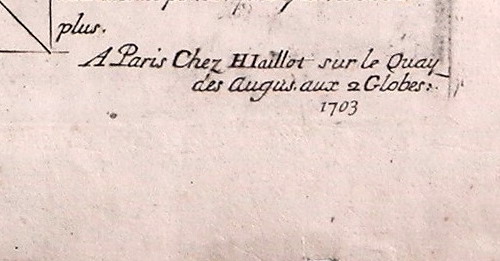 plus.
A Paris Chez HIaillot sur le Quay
des Augus. aux 2 Globes.
1703